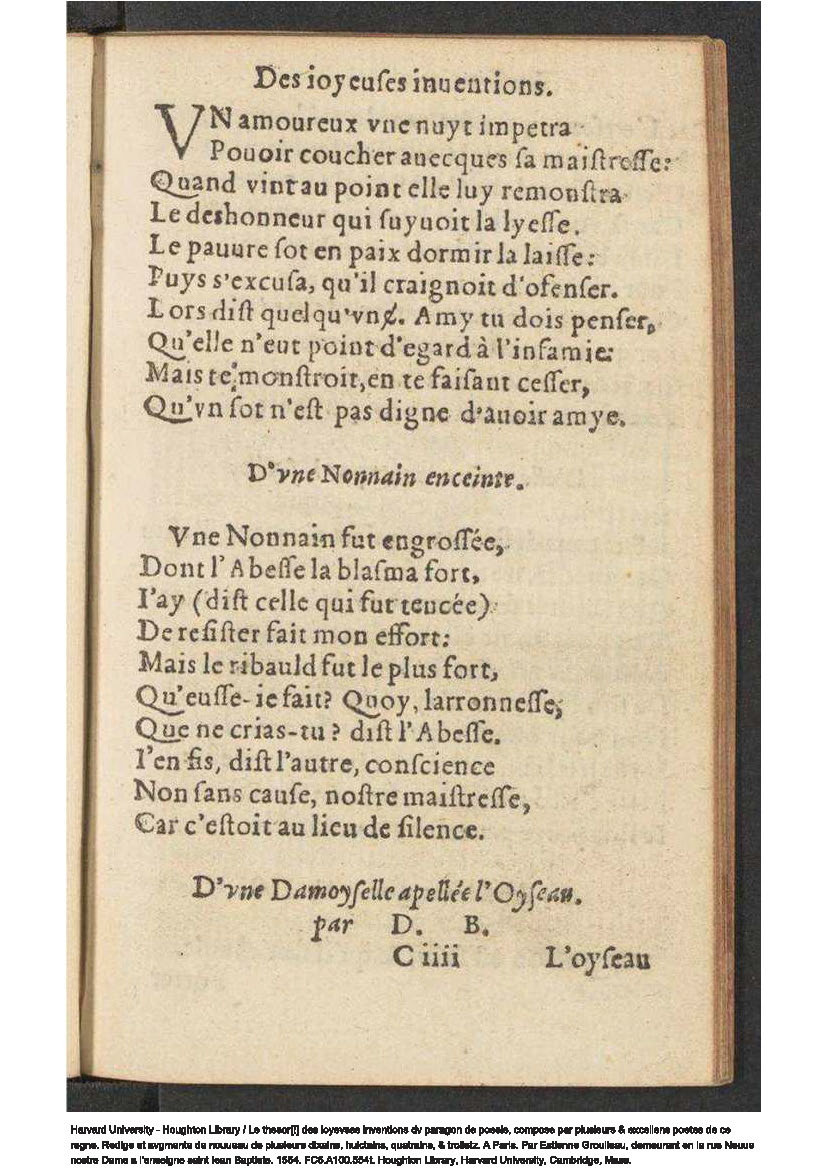 Des ioyeuſes inuentions.
VN amoureux vne nuyt impetra
Pouoir coucher auecques ſa maiſtreſſe:
Quand vint au point elle luy remonſtra
Le deshonneur qui ſuyuoit la lyeſſe.
Le pauure ſot en paix dormir la laiſſe:
Puys s'excuſa, qu'il craignoit d'ofenſer.
Lors diſt quelqu'vn. Amy tu dois penſer,
Qu'elle n'eut point d'egard à l'infamie:
Mais te monſtroit, en te faiſant ceſſer,
Qu'vn ſot n'eſt pas digne d'auoir amye.
D'vne Nonnain enceinte.
Vne Nonnain fut engroſſée,
Dont l'Abeſſe la blaſma fort,
I'ay (diſt celle qui fut tencée)
De reſiſter fait mon effort:
Mais le ribauld fut le plus fort,
Qu'euſſe-ie fait? Quoy, larronneſſe,
Que ne crias-tu? diſt l'Abeſſe.
I'en fis, diſt l'autre, conſcience
Non ſans cauſe, noſtre maiſtreſſe,
Car c'eſtoit au lieu de ſilence.
D'vne Damoyſelle apellée l'Oyſeau.
par D. B.
C iiii L'oyſeau
Harvard University - Houghton Library / Le thesor[!] des ioyevses inventions dv paragon de poesie, compose par plusieurs & excellens poetes de ce
regne. Redige et avgmente de nouueau de plusieurs dixains, huictains, quatrains, & trolletz. A Paris. Par Estienne Groulleau, demeurant en la rue Neuue
nostre Dame a l'enseigne saint Iean Baptiste. 1554. FC5.A100.554t. Houghton Library, Harvard University, Cambridge, Mass.